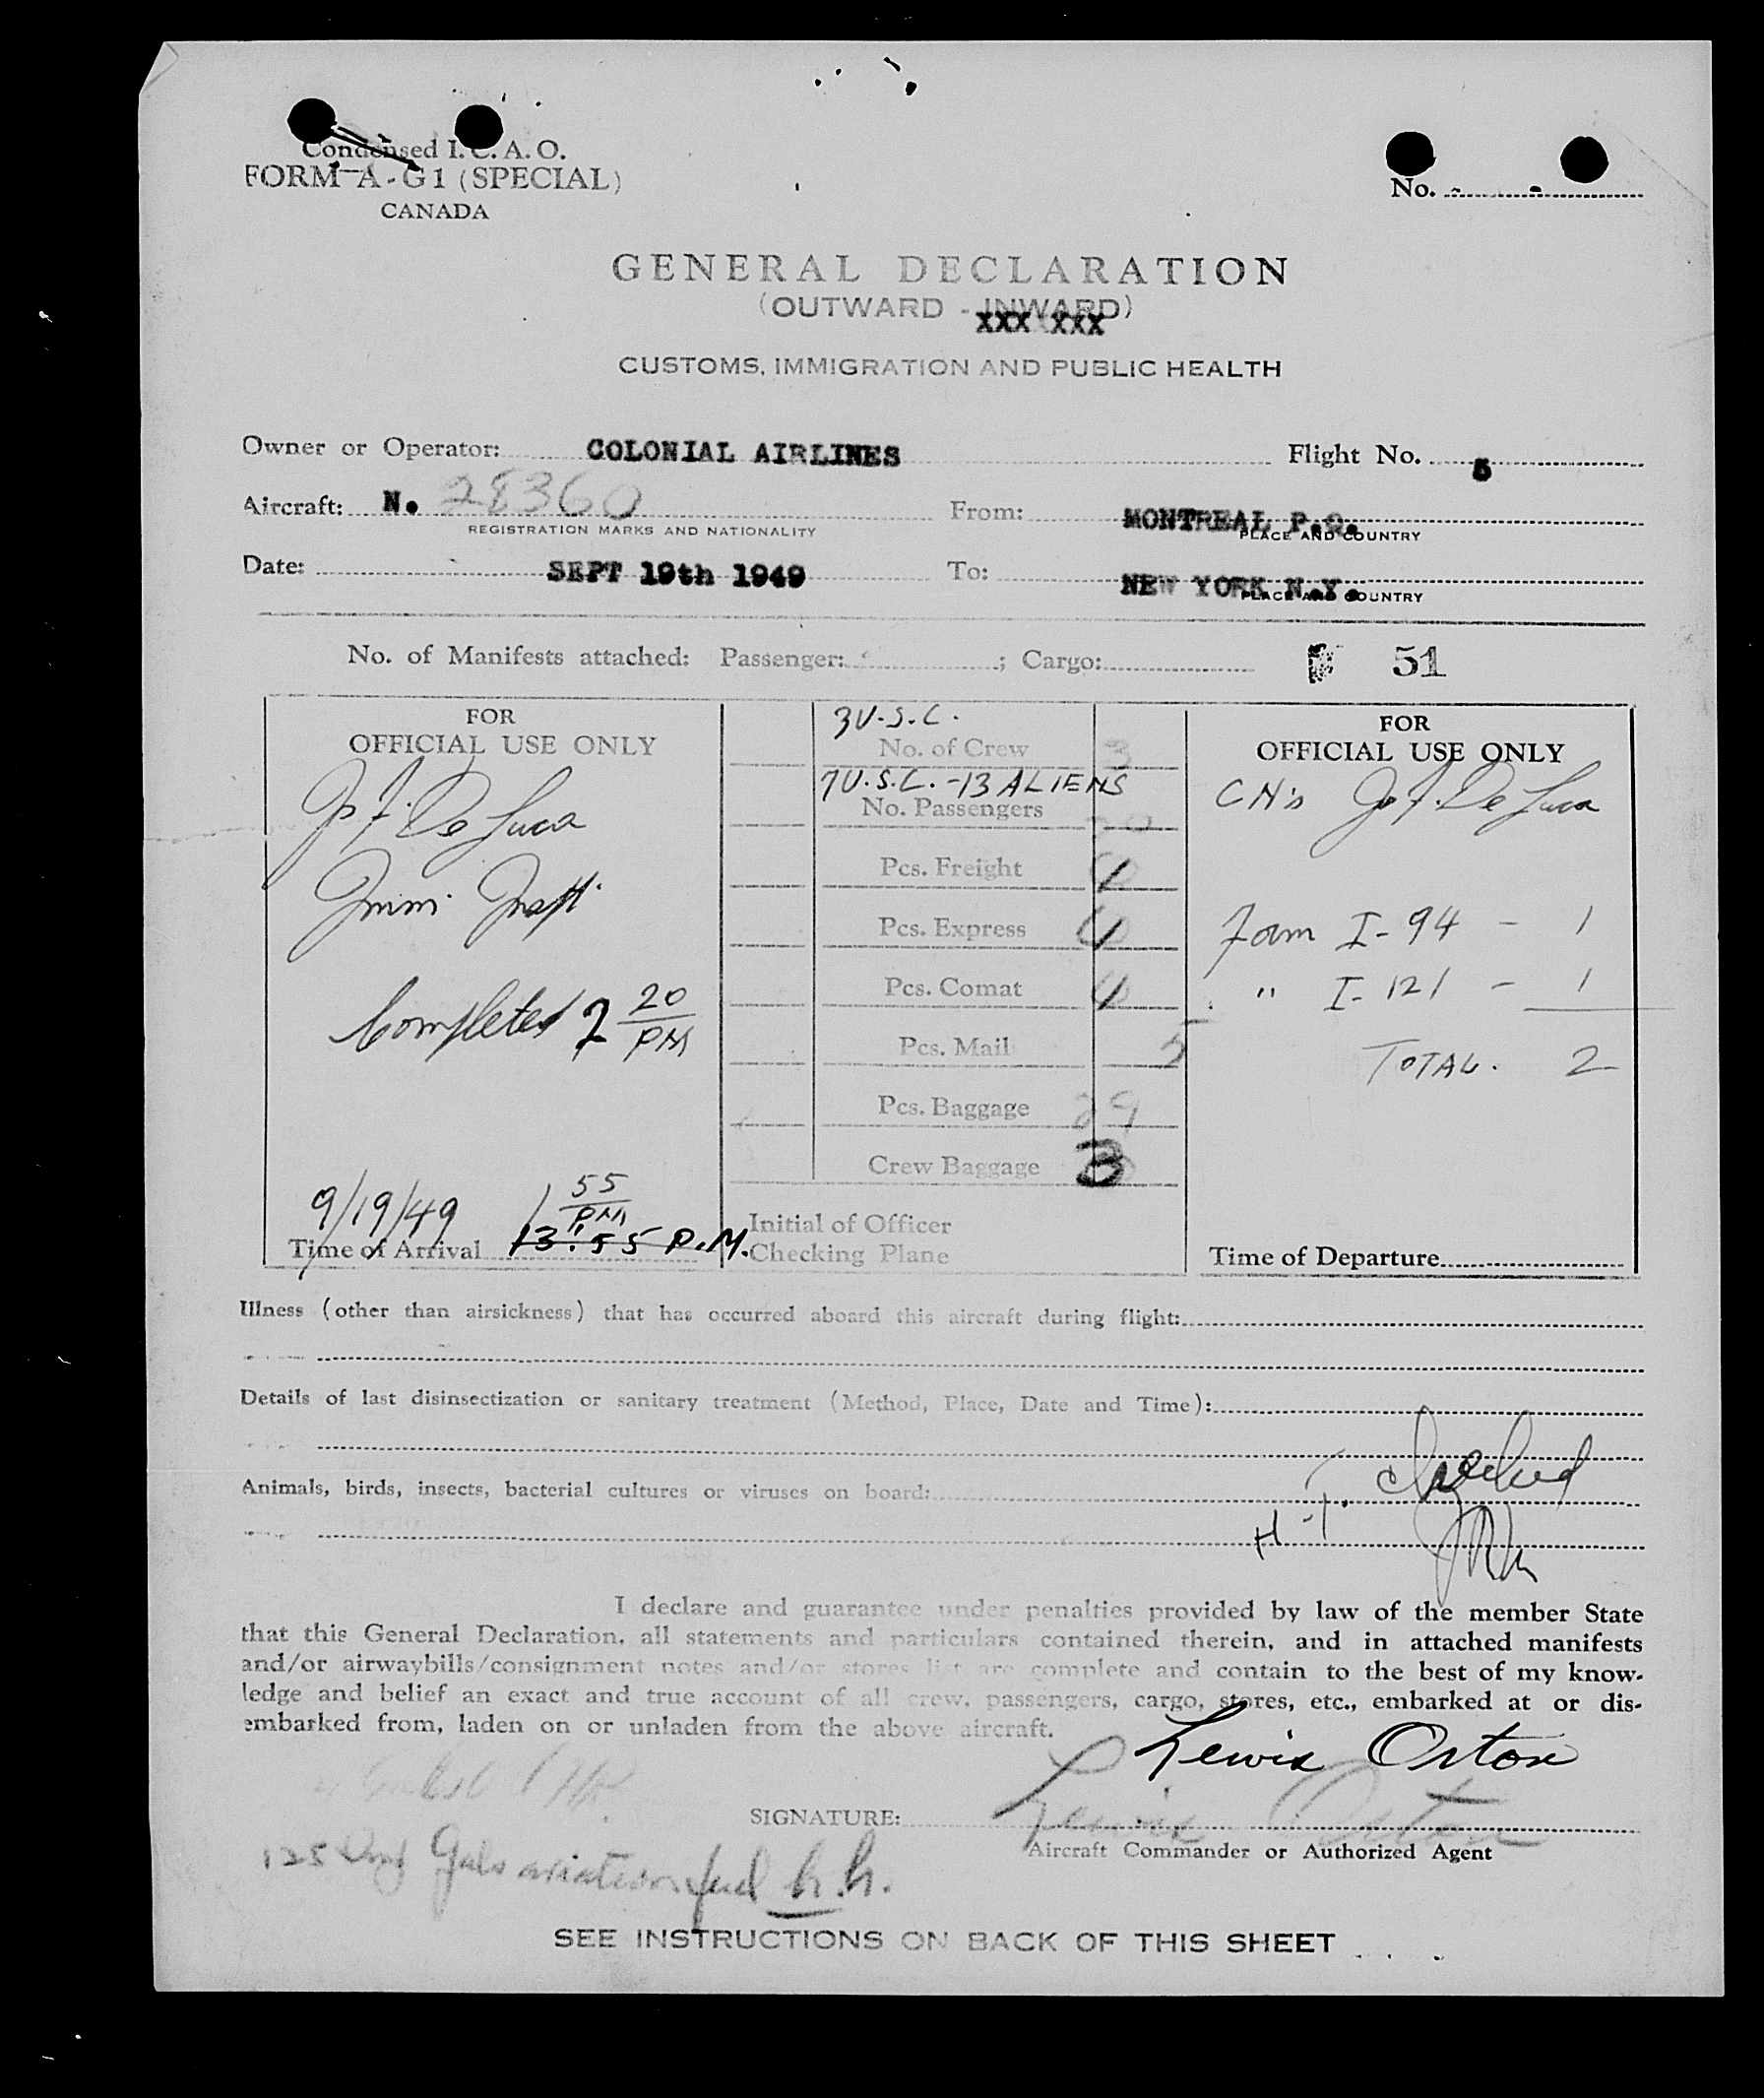 Condensed I.C.A.O.
FORM A-G1 (SPECIAL)
CANADA
No.
GENERAL DECLARATION
(OUTWARD - INWARD)
XXX XXX
CUSTOMS, IMMIGRATION AND PUBLIC HEALTH
Owner or Operator: COLONIAL AIRLINES Flight No. 5
Aircraft: N. 28360 From: MONTREAL P.Q.
REGISTRATION MARKS AND NATIONALITY PLACE AND COUNTRY
Date: SEPT 19th 1949 To: NEW YORK N.Y.
PLACE AND COUNTRY
No. of Manifests attached: Passenger: ; Cargo: 51
FOR
OFFICIAL USE ONLY
De Luca
Completed 2 20
PM
9/19/49 1 55
PM
Time of Arrival 13:55 P.M.
3 U.S.C.
No. of Crew 3
7 U.S.C. - 13 ALIENS
No. Passengers 20
Pcs. Freight
Pcs. Express
Pcs. Comat
Pcs. Mail 5
Pcs. Baggage 29
Crew Baggage 3
Initial of Officer
Checking Plane
FOR
OFFICIAL USE ONLY
De Luca
Form I-94 - 1
" I-121 - 1
TOTAL. 2
Time of Departure
Illness (other than airsickness) that has occurred aboard this aircraft during flight:
Details of last disinsectization or sanitary treatment (Method, Place, Date and Time):
Animals, birds, insects, bacterial cultures or viruses on board:
I declare and guarantee under penalties provided by law of the member State
that this General Declaration, all statements and particulars contained therein, and in attached manifests
and/or airwaybills/consignment notes and/or stores list are complete and contain to the best of my know-
ledge and belief an exact and true account of all crew, passengers, cargo, stores, etc., embarked at or dis-
embarked from, laden on or unladen from the above aircraft.
Lewis Orton
SIGNATURE: Lewis Orton
Aircraft Commander or Authorized Agent
125 Gals aviation fuel
SEE INSTRUCTIONS ON BACK OF THIS SHEET